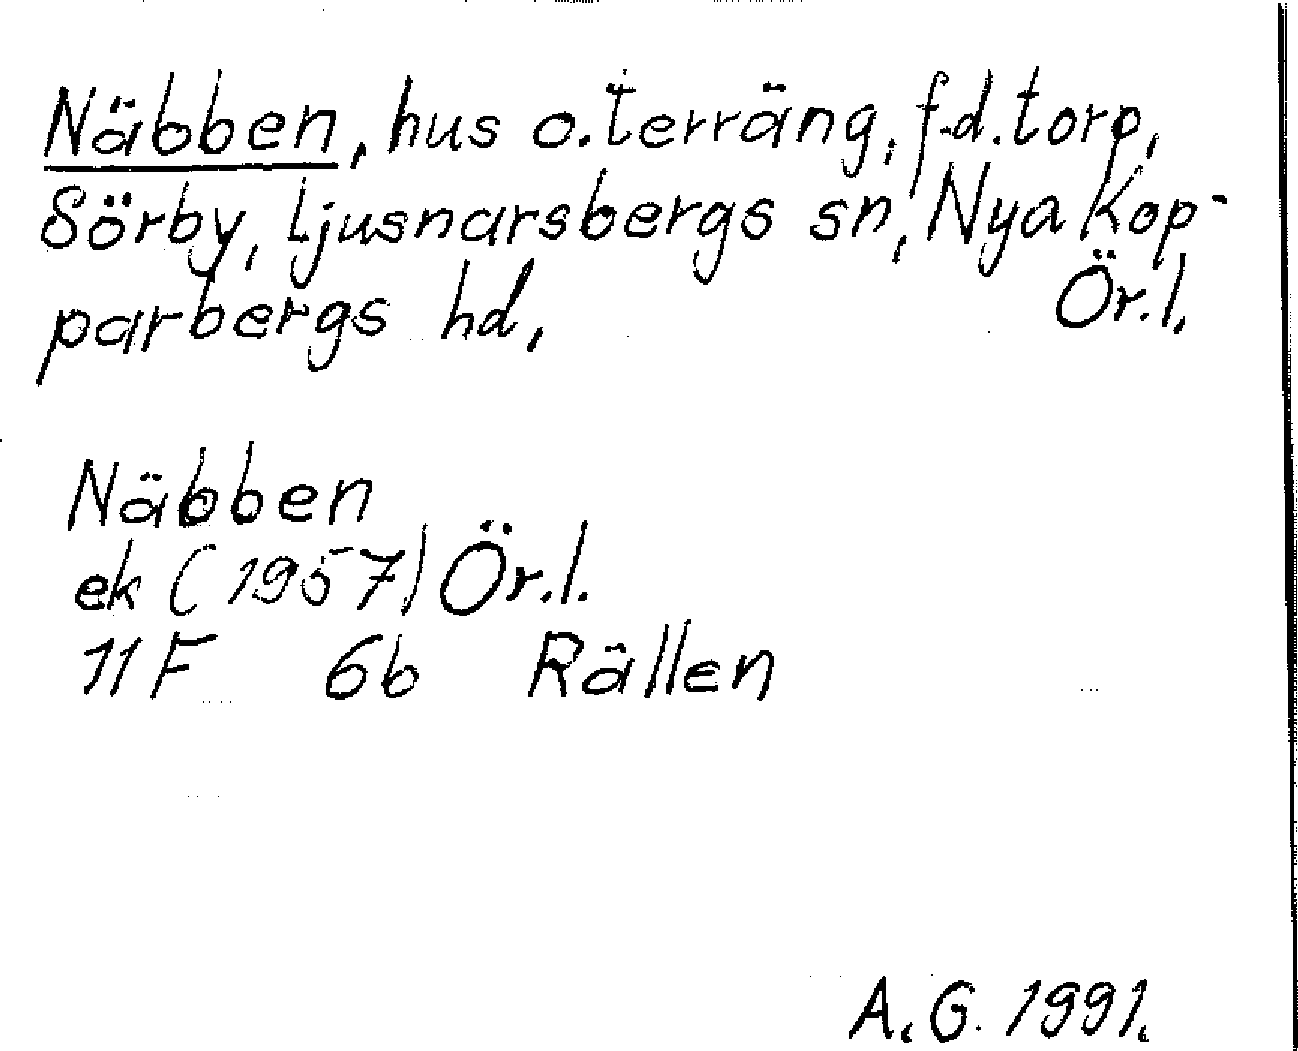 Näbben, hus o. terräng, f.d. torp,
Sörby, Ljusnarsbergs sn, Nya Kop-
parbergs hd, Ör.l.
Näbben
ek (1957) Ör.l.
11F 6b Rällen
A.G. 1991.